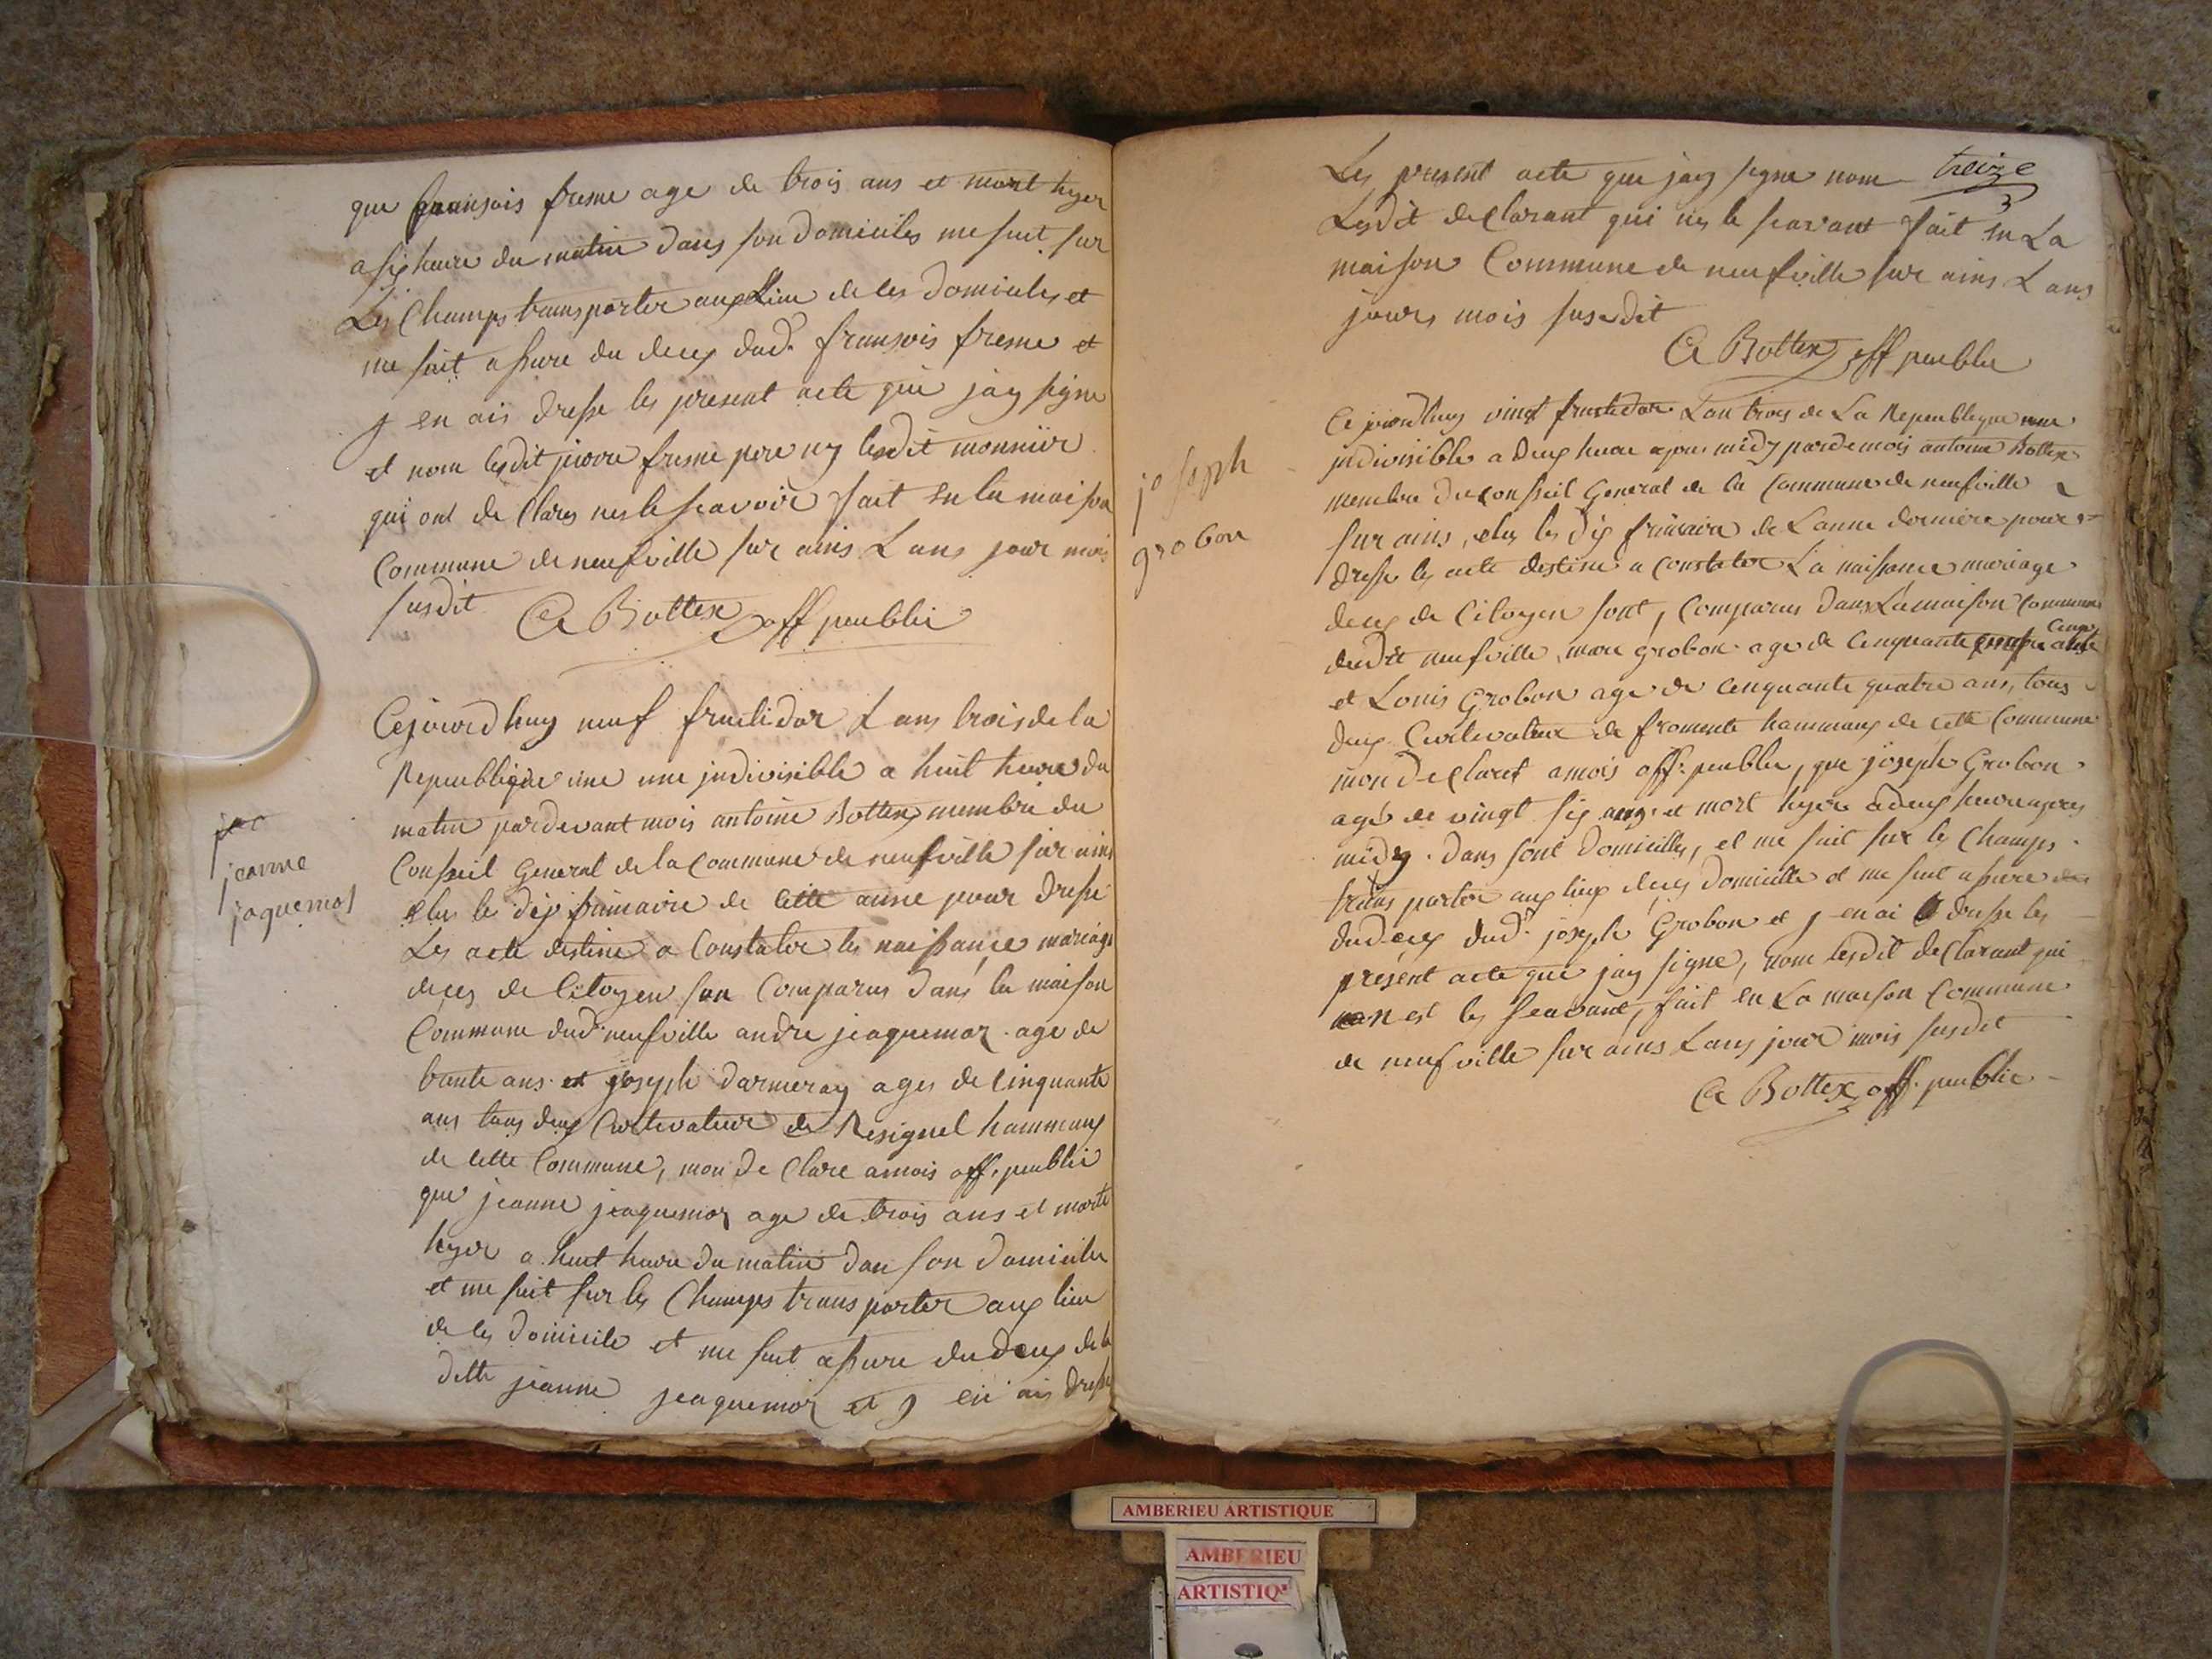 que fransois fresne age de trois ans et mort hyer
a six heure du matin dans son domiciles me suit sur
Les Champs transporter aux Lieu de les domiciles et
me suit assure du deces dud. fransois fresne et
j en ais dresse les present acte que jay signe
et nom lesdit pierre fresne pere ny lesdit monnier
qui ont de Clares nes le scavoir fait en la maison
Commune de neufville sur ains L ans jour mois
susdit A Bottex off peublic
Cejourdhuy neuf fructidor L ans trois de la
Republique une une jndivisible a huit heure du
matin pardevant mois antoine Bottex membre du
Conseil General de la Commune de neufville sur ains
elus le dix frimaire de cette anne pour dresse
Les acte destine a Constater les naissance mariage
deces de Citoyen son Comparus dans la maison
Commune dud. neufville andre jeaquemoz age de
trante ans et joseph darmeray ages de Cinquante
ans tous deux Cultivateur de Resignel hammaux
de cette Commune, mon de Clare amois off. peublic
que jeanne jeaquemoz age de trois ans et morte
hyer a huit heure du matin dan son domicile
et me suit sur les Champs transporter aux lieu
de les domicile et me suit assure du deces de la
ditte jeanne jeaquemoz et j en ais dresse
jac
jeanne
jaquemos
Les present acte que jay signe nom treize
Lesdit declarant qui nes le scavant fait en La
maison Commune de neufville sur ains L ans
jours mois susdit
A Bottex off peublic
joseph
grobon
Ce jourdhuy vingt fructidor L an trois de La Republique une
jndivisible a deux heure apres midy pardemois antoine Bottex
membre du Conseil General de la Commune de neufville
sur ains, elus les dix frimaire de Lanne derniere pour
dresse les acte destine a Constater La naissance mariage
deces de Citoyen sont, Comparus dans La maison Commune
dudit neufville, marc grobon age de Cinquante Cinq ans
et Louis Grobon age de Cenquante quatre ans, tous
deux Cultivateur de fromente hammaux de cette Commune
mon de Claret amois off. peublic, que joseph Grobon
age de vingt six ans et mort hyere a deux heure apres
midy. dans sont domicilles, et me suit sur les Champs
trans porter aux lieux de ces domicille et me suit assure
du deces dud. joseph Grobon et j en ai dresse les
present acte que jay signe, nom lesdit de Clarant qui
nest les scavant, fait en La maison Commune
de neufville sur ains Lans jour mois susdit
A Bottex off. peublic
AMBERIEU ARTISTIQUE
AMBERIEU
ARTISTIQ